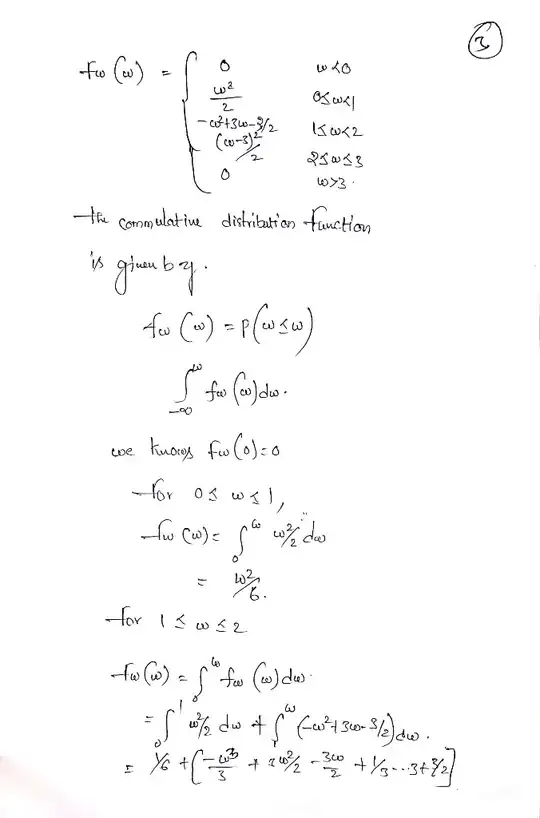 3
fw(ω) = { 0 ω<0
ω²/2 0≤ω<1
-ω²+3ω-3/2 1≤ω<2
(ω-3)²/2 2≤ω≤3
0 ω>3.
the commulative distribution function
is given by.
fw(ω) = P(ω≤ω)
∫_{-∞}^{ω} fω(ω)dω.
we knows fω(0)=0
for 0≤ω≤1,
fω(ω) = ∫_0^ω ω²/2 dω
= ω²/6.
for 1≤ω≤2
fω(ω) = ∫_0^ω fω(ω)dω.
= ∫_0^1 ω²/2 dω + ∫_1^ω (-ω²+3ω-3/2)dω.
= 1/6 + [-ω³/3 + 3ω²/2 - 3ω/2 + 1/3 - .. 3 + 3/2]